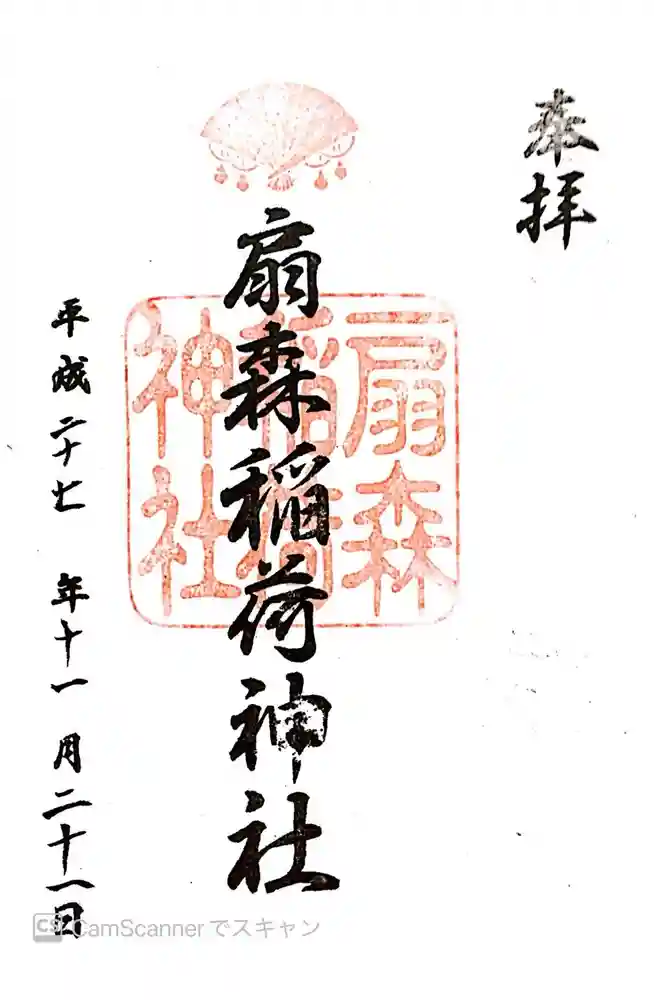 奉拝
扇森稲荷神社
扇森
稲荷
神社
平成二十七年十一月二十一日
CS CamScannerでスキャン